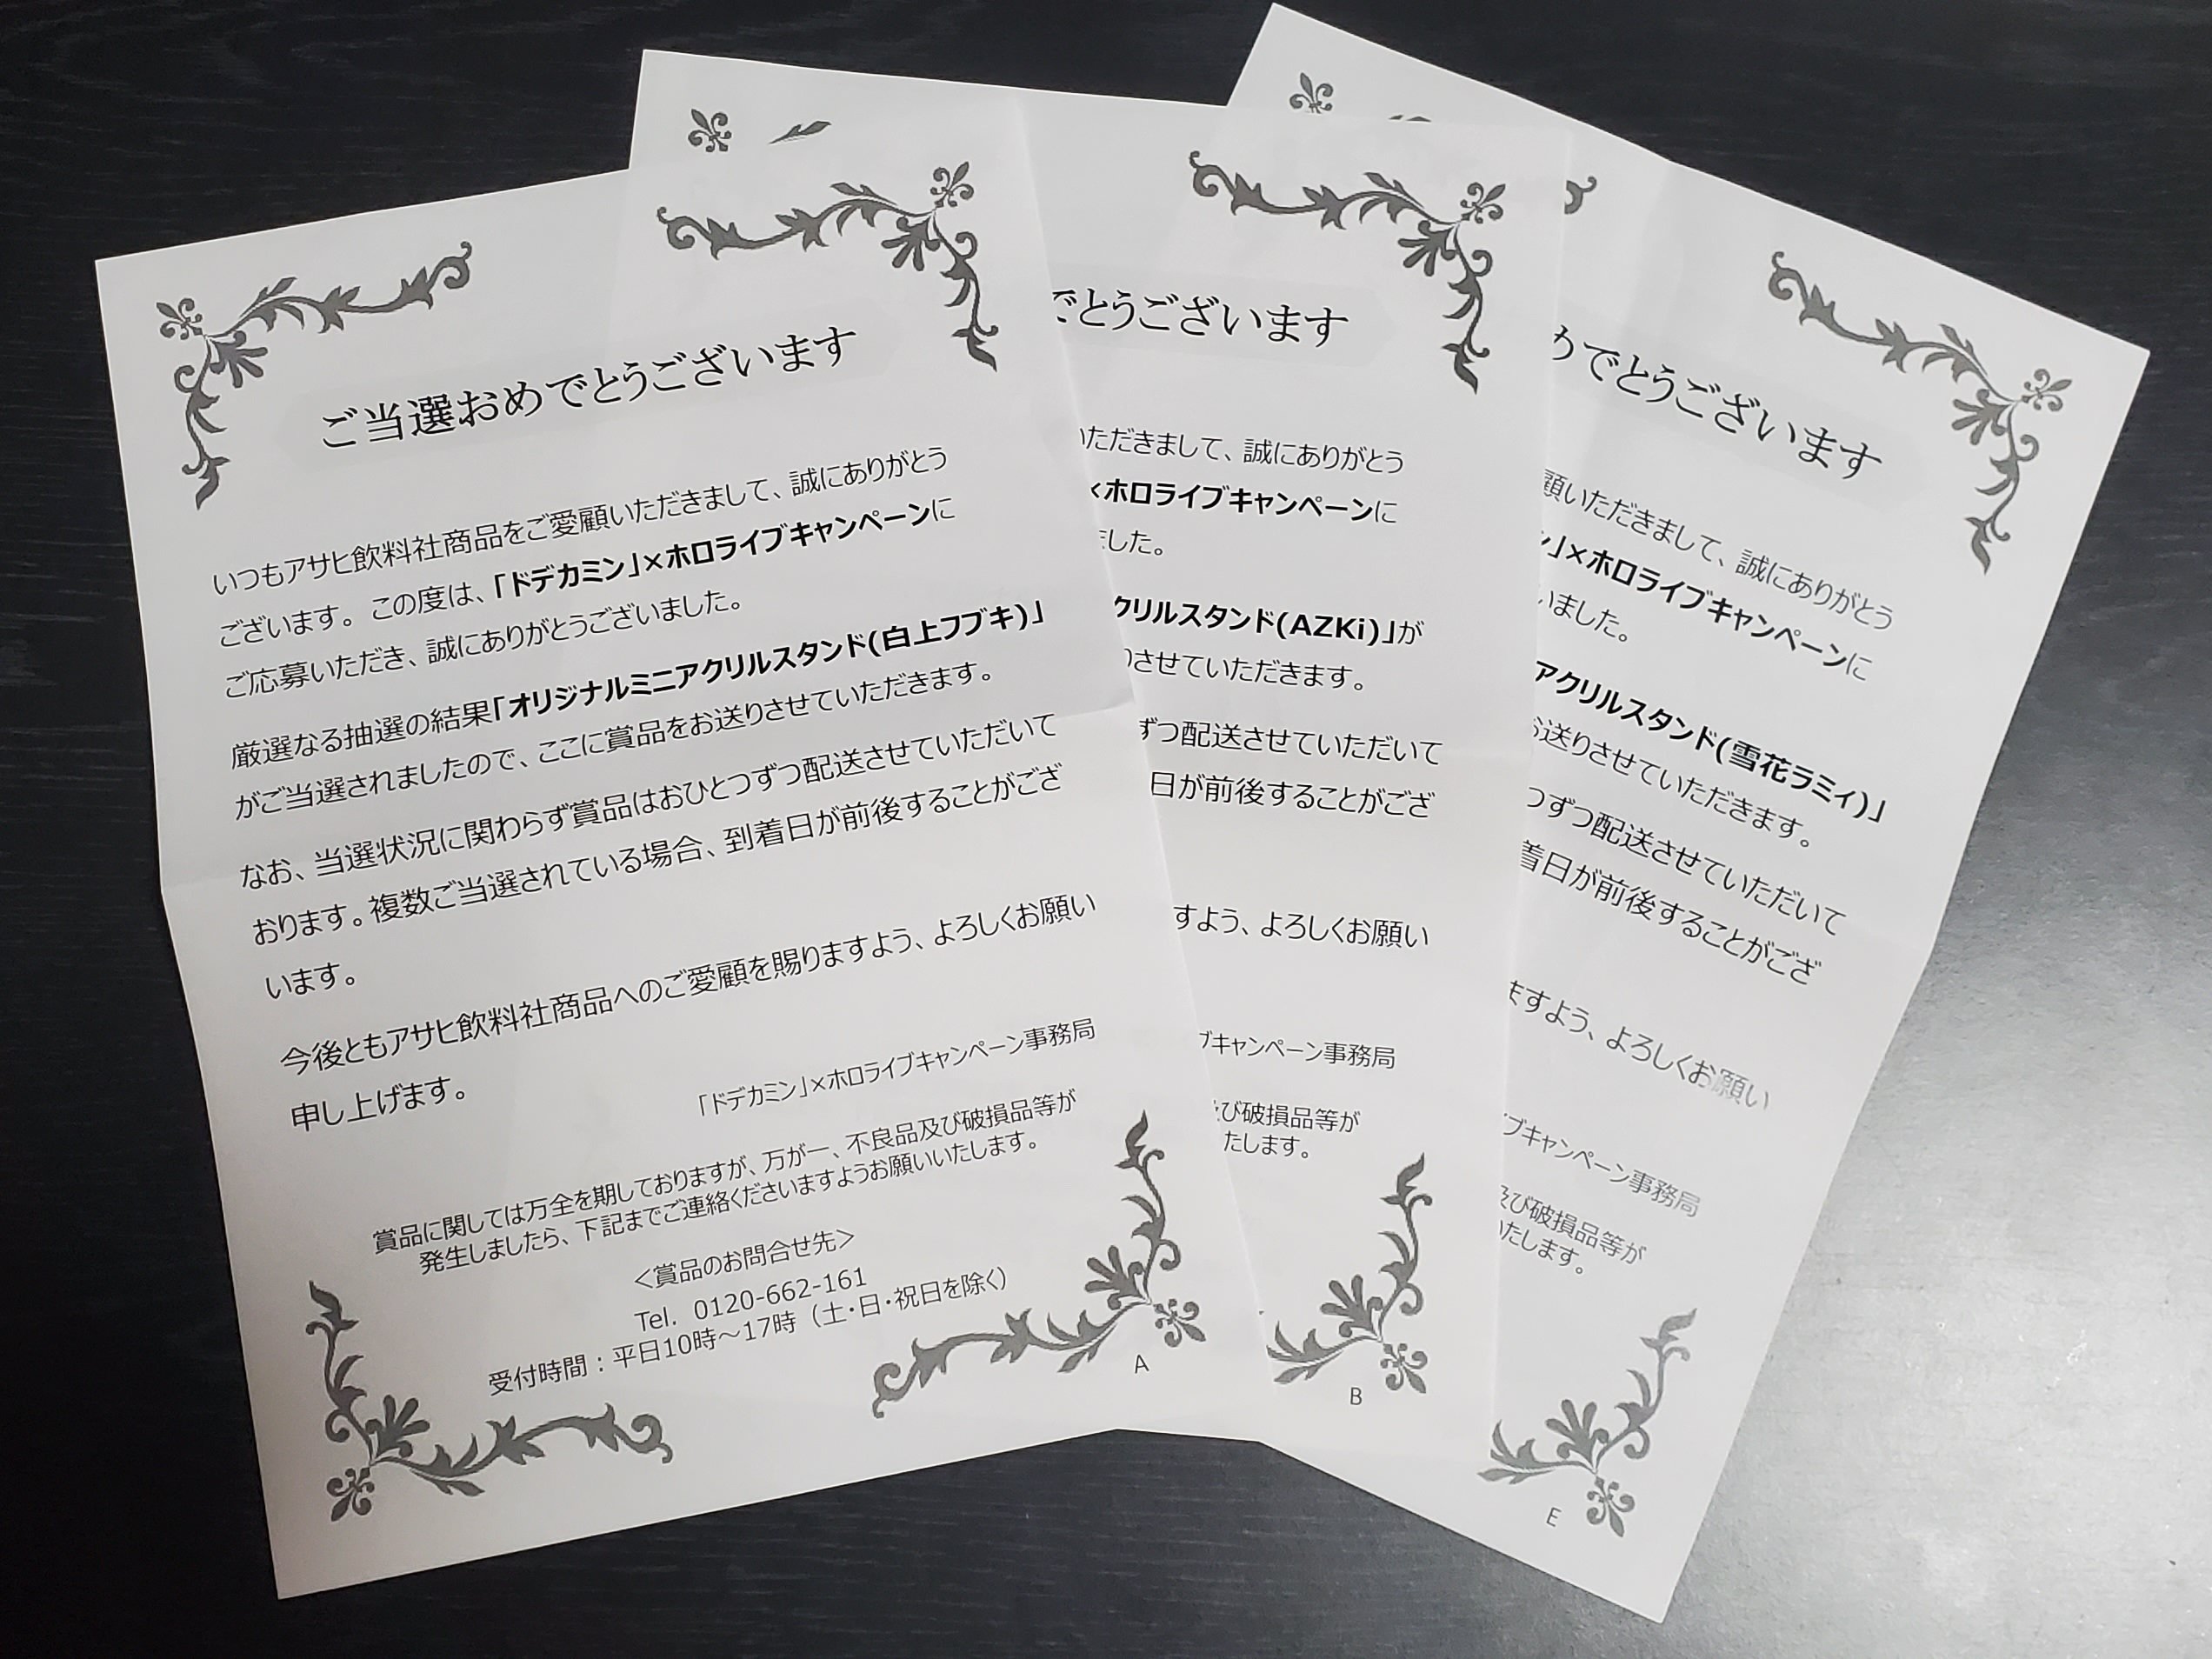 ご当選おめでとうございます
いつもアサヒ飲料社商品をご愛顧いただきまして、誠にありがとう
ございます。この度は、「ドデカミン」×ホロライブキャンペーンに
ご応募いただき、誠にありがとうございました。
厳選なる抽選の結果「オリジナルミニアクリルスタンド(白上フブキ)」
がご当選されましたので、ここに賞品をお送りさせていただきます。
なお、当選状況に関わらず賞品はおひとつずつ配送させていただいて
おります。複数ご当選されている場合、到着日が前後することがござ
います。
今後ともアサヒ飲料社商品へのご愛顧を賜りますよう、よろしくお願い
申し上げます。
「ドデカミン」×ホロライブキャンペーン事務局
賞品に関しては万全を期しておりますが、万が一、不良品及び破損品等が
発生しましたら、下記までご連絡くださいますようお願いいたします。
<賞品のお問合せ先>
Tel. 0120-662-161
受付時間:平日10時~17時(土・日・祝日を除く)
A
でとうございます
いただきまして、誠にありがとう
×ホロライブキャンペーンに
ました。
クリルスタンド(AZKi)」が
りさせていただきます。
ずつ配送させていただいて
日が前後することがござ
すよう、よろしくお願い
ブキャンペーン事務局
及び破損品等が
たします。
B
めでとうございます
顧いただきまして、誠にありがとう
ン」×ホロライブキャンペーンに
いました。
アクリルスタンド(雪花ラミィ)」
お送りさせていただきます。
つずつ配送させていただいて
着日が前後することがござ
ますよう、よろしくお願い
イブキャンペーン事務局
及び破損品等が
いたします。
E